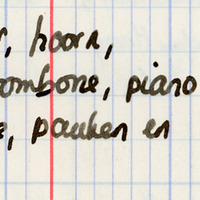 , hoorn,
ombone, piano
, pauken en